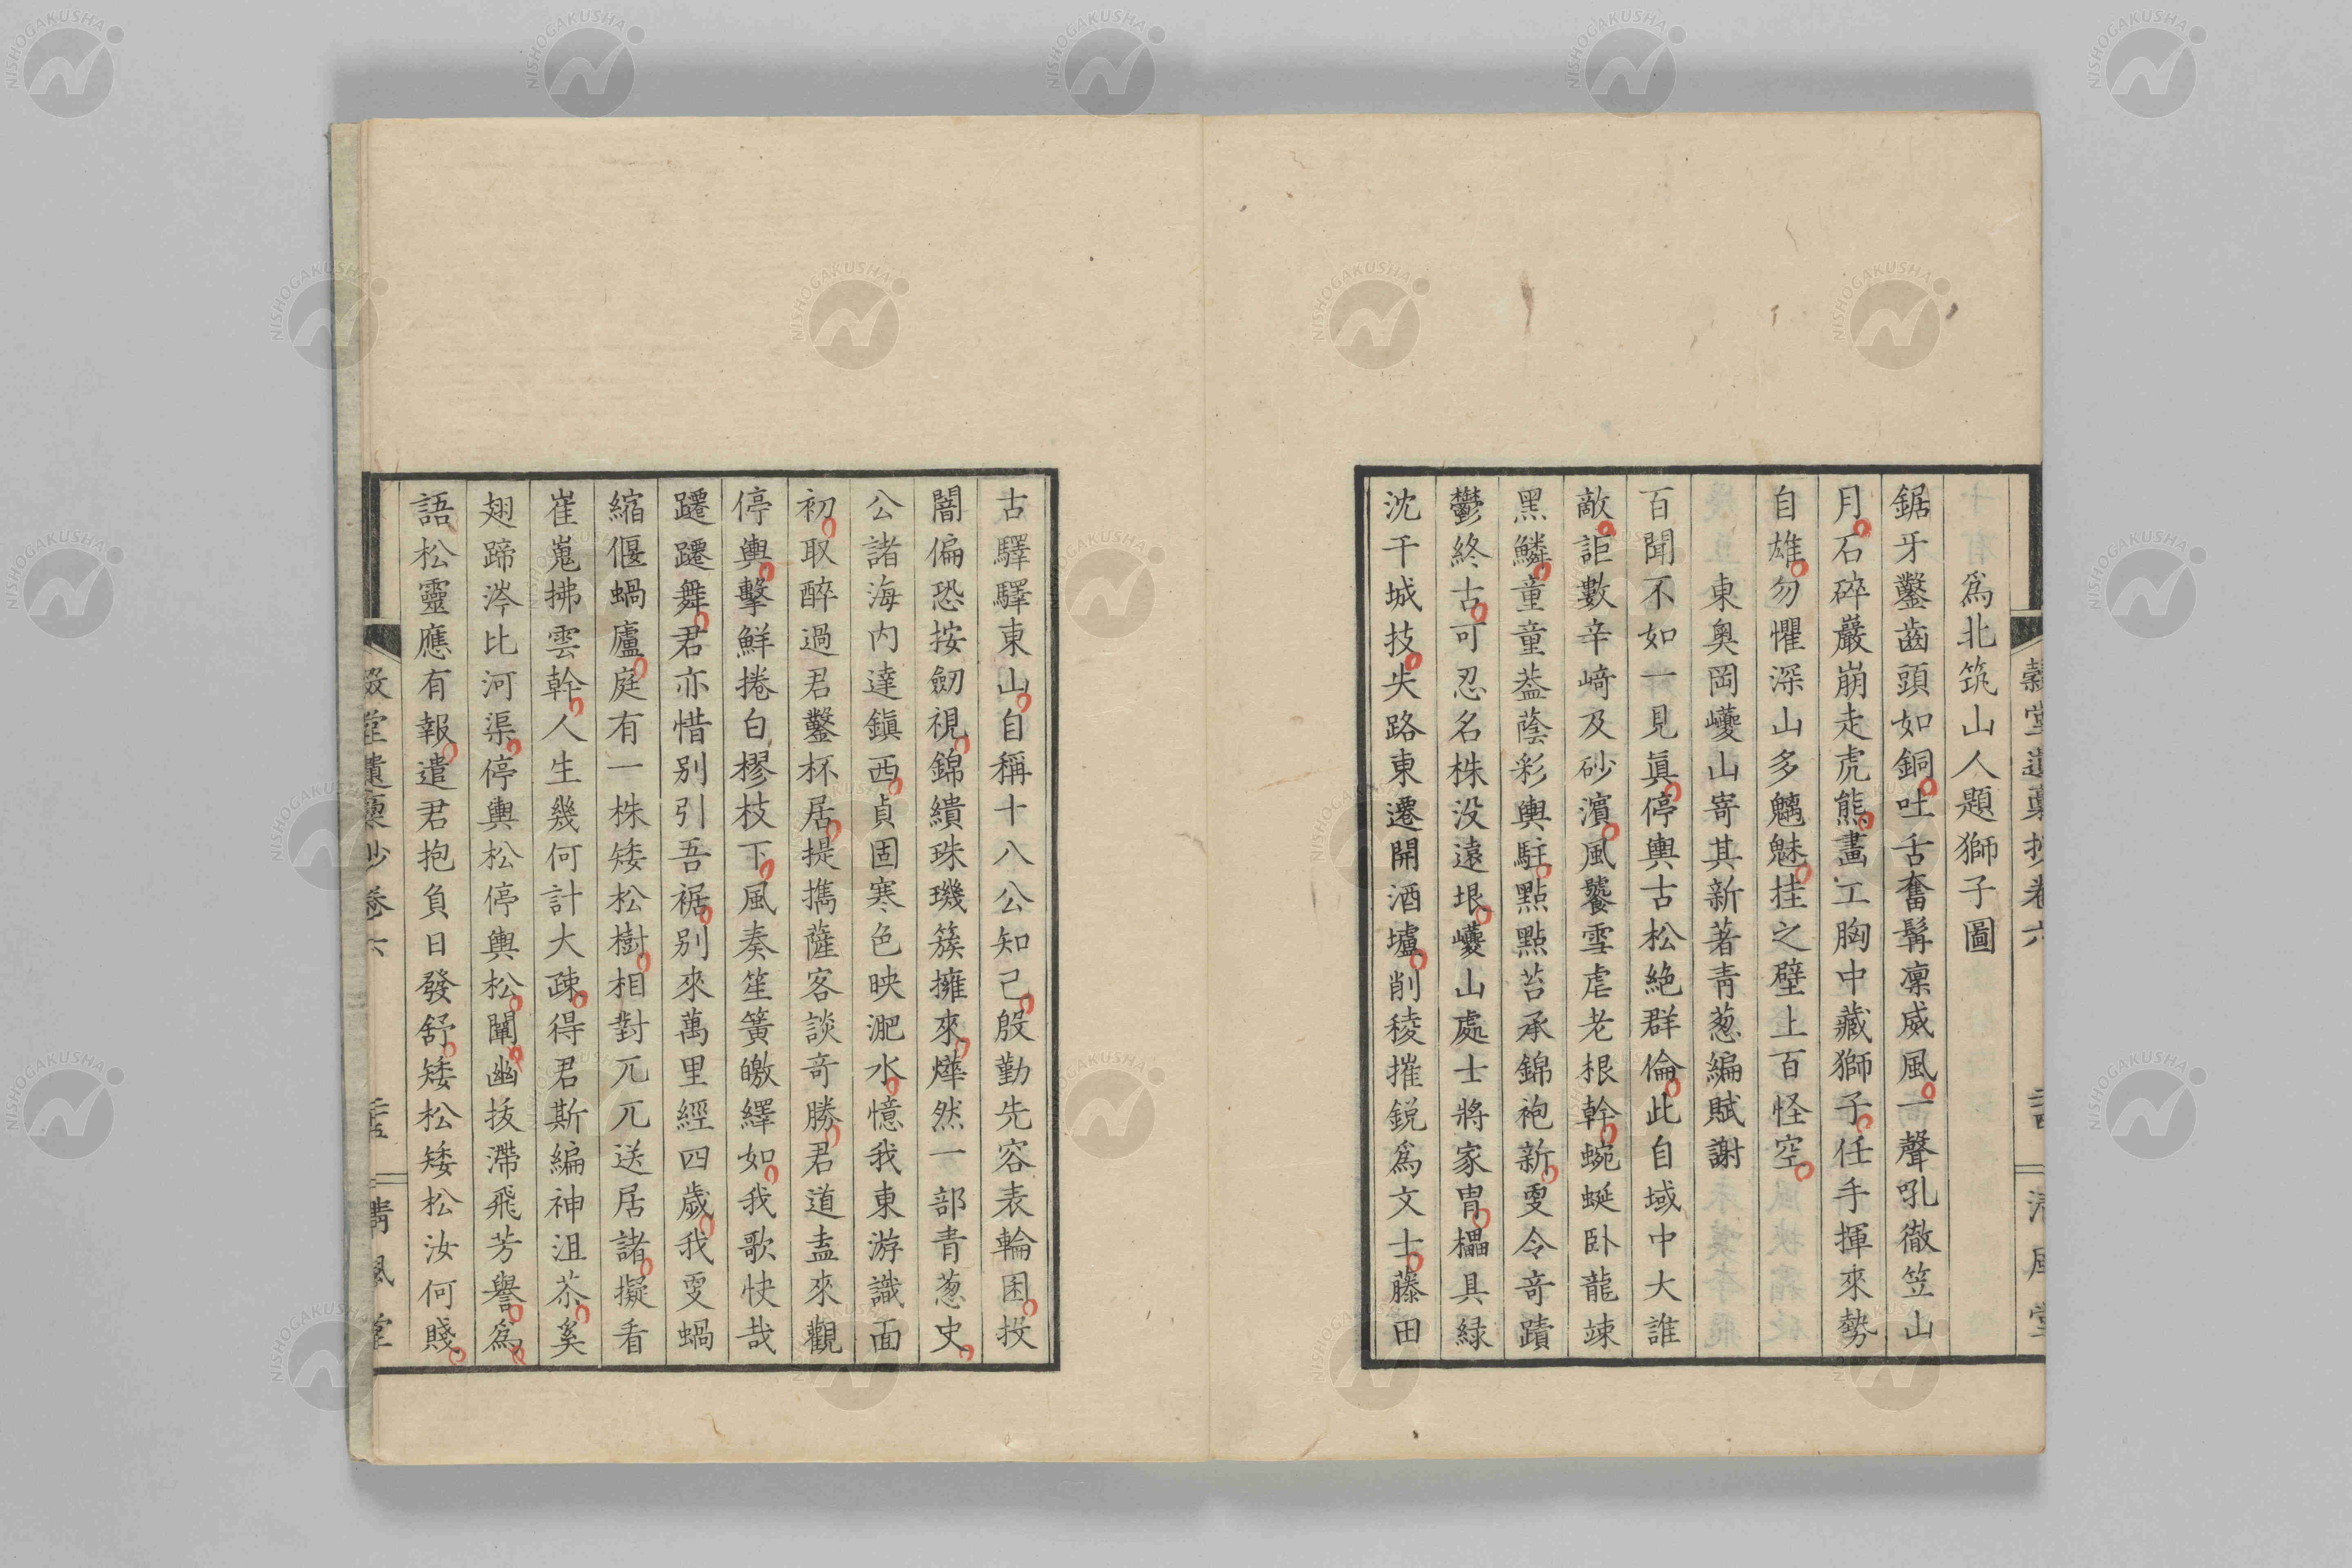 爲北筑山人題獅子圖
鋸牙鑿齒頭如銅吐舌奮髯凜威風一聲吼徹笠山
月石碎巖崩走虎熊畫工胸中藏獅子任手揮來勢
自雄勿懼深山多魑魅挂之壁上百怪空
東奧岡巙山寄其新著青葱編賦謝
百聞不如一見眞停輿古松絶群倫此自域中大誰
敵詎數辛崎及砂濱風饕雪虐老根幹蜿蜒卧龍竦
黑鱗童童葢蔭彩輿駐點點苔承錦袍新雯令奇蹟
鬱終古可忍名株没遠垠巙山處士將家胄櫑具緑
沈干城技失路東遷開酒壚削稜摧鋭爲文士藤田
古驛驛東山自稱十八公知己殷勤先容表輪囷投
闇偏恐按劒視錦繢珠璣簇擁來燁然一部青葱史
公諸海内達鎭西貞固寒色映淝水憶我東游識面
初取醉過君鑿杯居提擕薩客談奇勝君道盍來觀
停輿擊鮮捲白樛枝下風奏笙簧皦繹如我歌快哉
躚躚舞君亦惜別引吾裾別來萬里經四歳我雯蝸
縮偃蝸廬庭有一株矮松樹相對兀兀送居諸擬看
崔嵬拂雲幹人生幾何計大疎得君斯編神沮苶奚
翅蹄涔比河渠停輿松停輿松闡幽拔滯飛芳譽爲
語松靈應有報遣君抱負日發舒矮松矮松汝何賤
穀堂遺稾抄卷六
清風堂